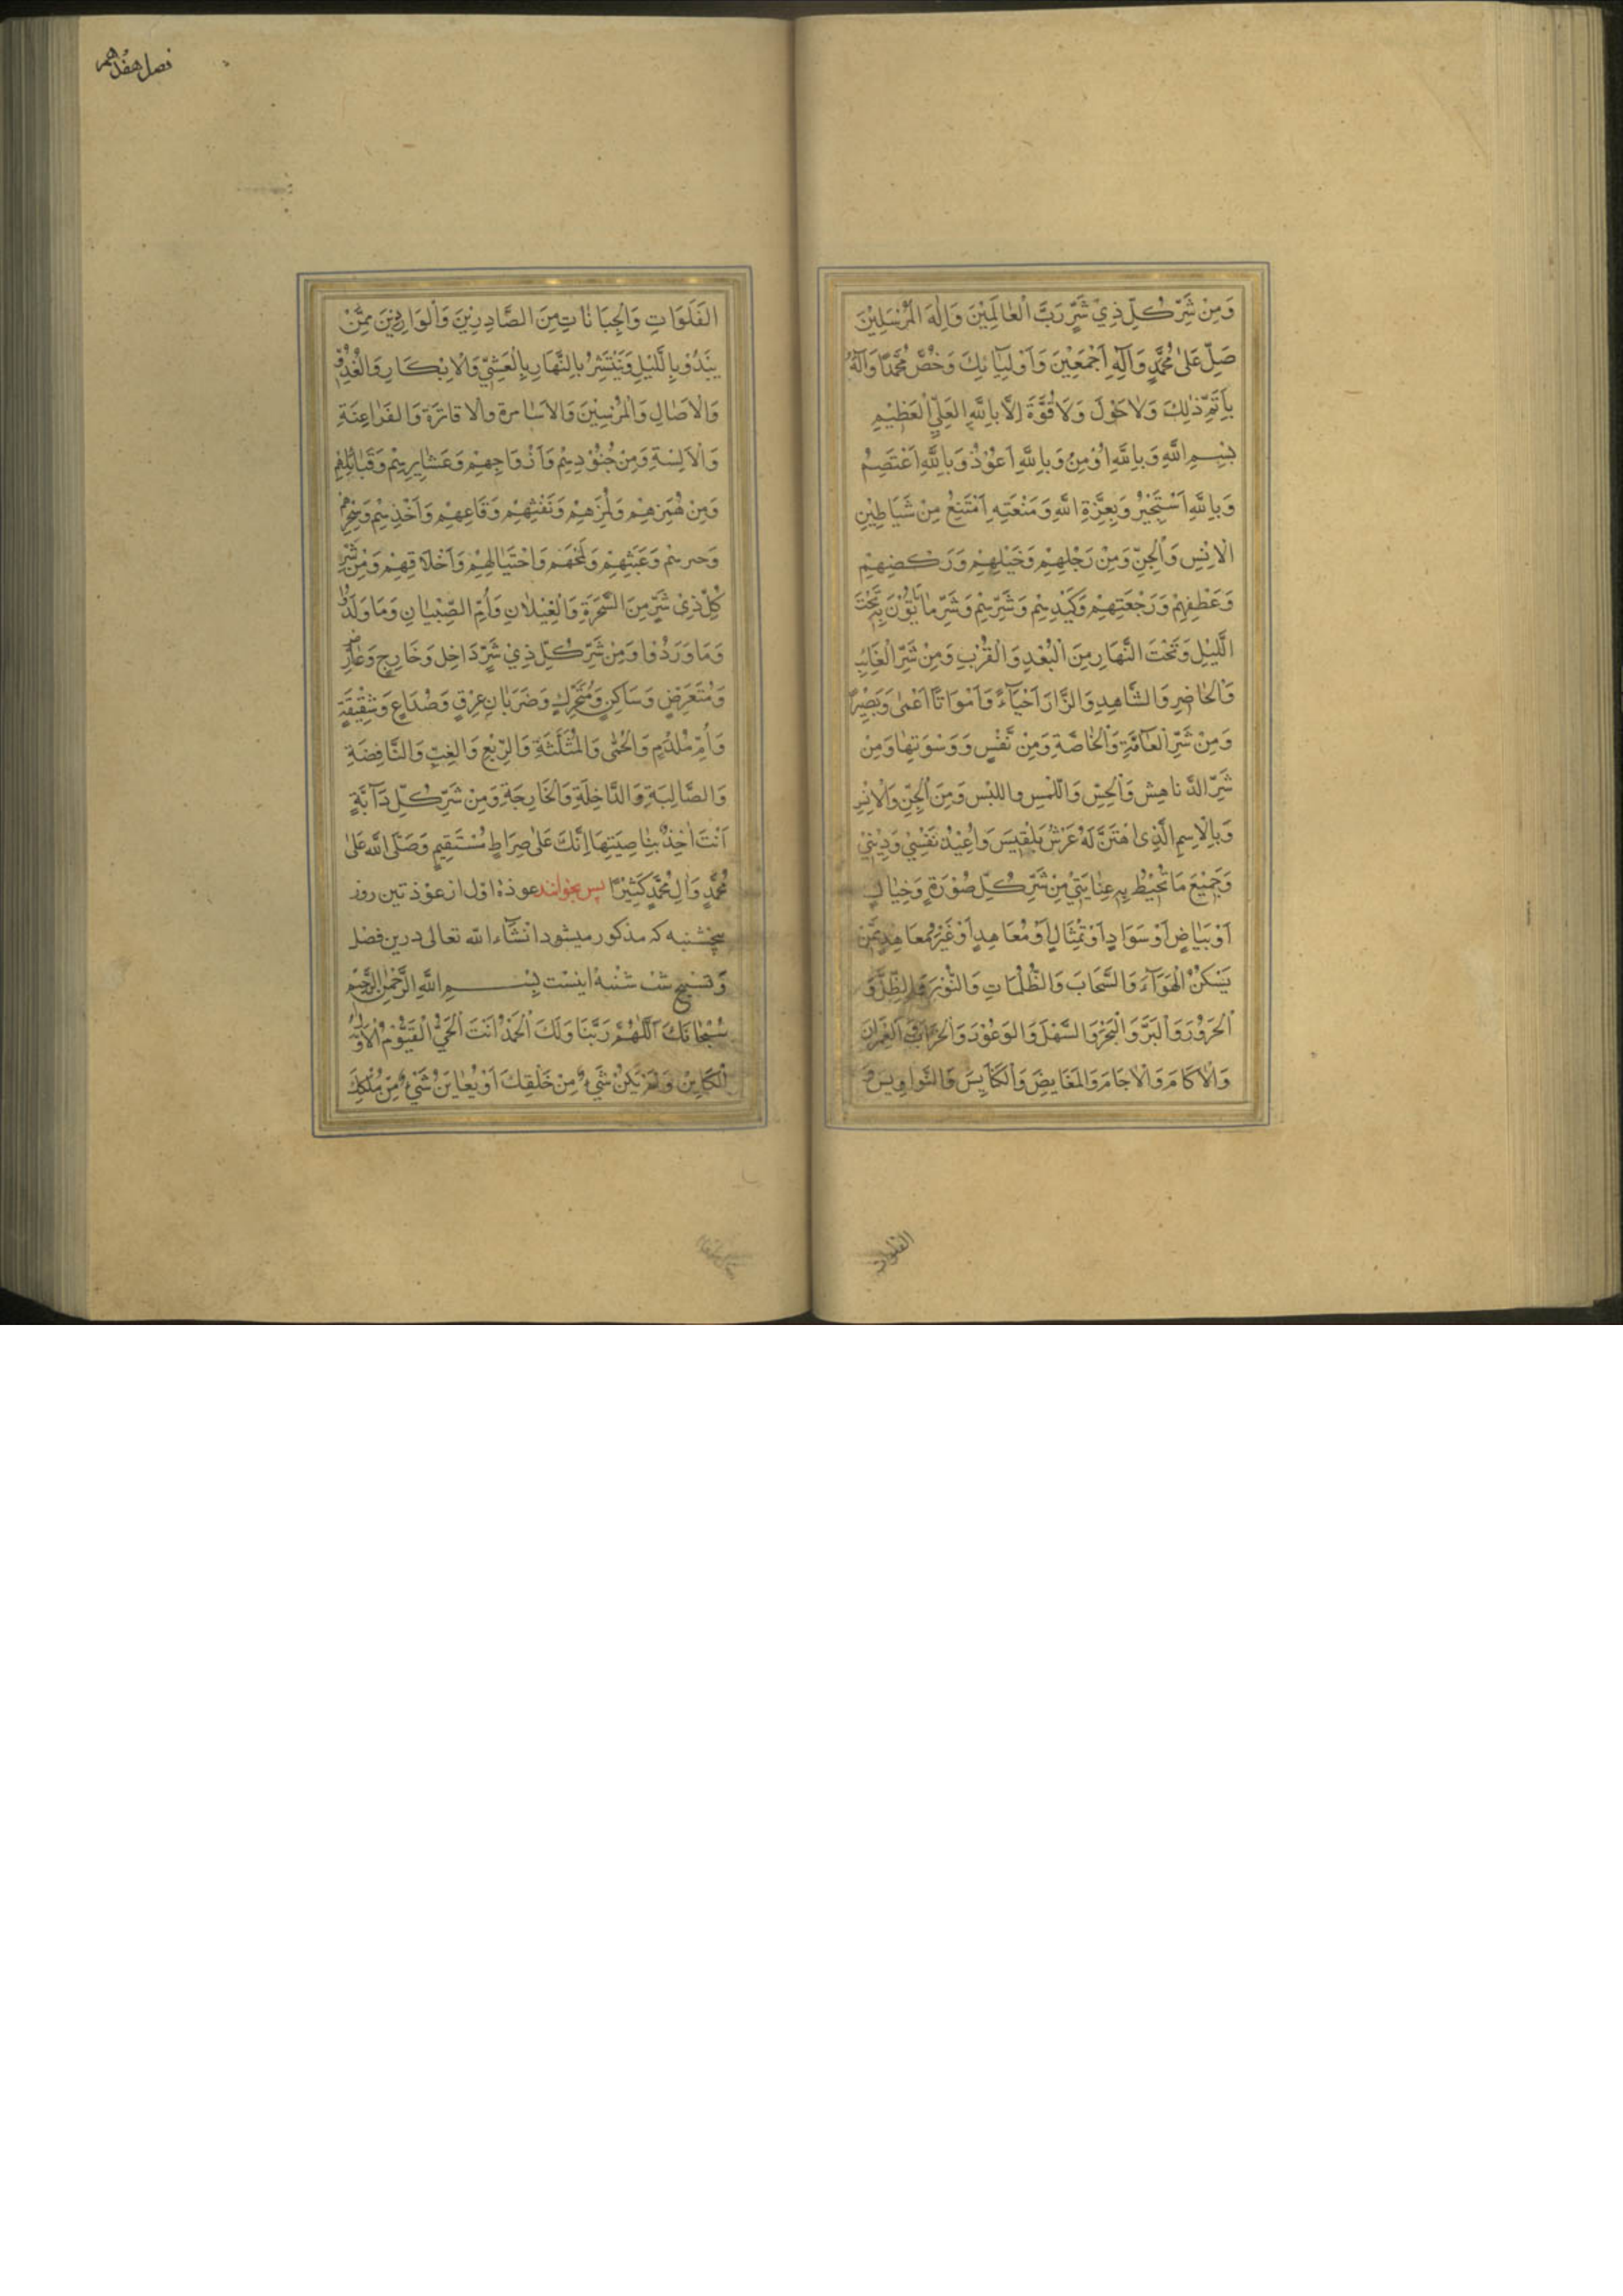 وَمِنْ شَرِّ كُلِّ ذِيْ شَرٍّ رَبَّ الْعٰالَمِيْنَ وَاِلٰهَ الْمُرْسَلِيْنَ
صَلِّ عَلىٰ مُحَمَّدٍ وَآلِهِ اَجْمَعِيْنَ وَاَوْلِيٰٓائِكَ وَخُصَّ مُحَمَّدًا وَآلَهُ
بِاَتَمِّ ذٰلِكَ وَلٰا حَوْلَ وَلَا قُوَّةَ اِلَّا بِاللّٰهِ الْعَلِيِّ الْعَظِيْمِ
بِسْــمِ اللّٰهِ وَبِاللّٰهِ اُوْمِنُ وَبِاللّٰهِ اَعُوْذُ وَبِاللّٰهِ اَعْتَصِمُ
وَبِاللّٰهِ اَسْتَجِيْرُ وَبِعِزَّةِ اللّٰهِ وَمَنْعَتِهِ اَمْتَنِعُ مِنْ شَيَاطِيْنِ
الْاِنْسِ وَالْجِنِّ وَمِنْ رَجْلِهِمْ وَخَيْلِهِمْ وَرَكْضِهِمْ
وَعَطْفِهِمْ وَرَجْعَتِهِمْ وَكَيْدِهِمْ وَشَرِّهِمْ وَشَرِّ مٰا يَأْتُوْنَ بِهِ تَحْتَ
اللَّيْلِ وَتَحْتَ النَّهَارِ مِنَ الْبُعْدِ وَالْقُرْبِ وَمِنْ شَرِّ الْغَائِبِ
وَالْحٰاضِرِ وَالشَّاهِدِ وَالزَّارِ اَحْيَآءً وَاَمْوَاتًا اَعْمىٰ وَبَصِيْرًا
وَمِنْ شَرِّ الْعٰآمَّةِ وَالْخٰاصَّةِ وَمِنْ نَفْسٍ وَوَسْوَسَتِهٰا وَمِنْ
شَرِّ الدَّناهِش وَالْحِسِّ وَاللَّمْسِ واللبْس وَمِنَ الْجِنِّ وَالْاِنْسِ
وَبِالْاِسْمِ الَّذِى اهْتَزَّ لَهُ عَرْشُ بَلْقِيسَ وَاُعِيْذُ نَفْسِيْ وَدِيْنِيْ
وَجَمِيْعَ مَا تُحِيْطُ بِهِ عِنٰايَتِيْ مِنْ شَرِّ كُلِّ صُوْرَةٍ وَخِيٰالٍ
اَوْ بَيَاضٍ اَوْ سَوَادٍ اَوْ تِمْثَالٍ اَوْ مُعَاهِدٍ اَوْ غَيْرِ مُعَاهِدٍ مِمَّنْ
يَسْكُنُ الْهَوَآءَ وَالسَّحَابَ وَالظُّلُمَاتِ وَالنُّوْرَ وَالظِّلَّ وَ
الْحَرُوْرَ وَالْبَرَّ وَالْبَحْرَ وَالسَّهْلَ وَالوُعُوْرَ وَالْخَرَابَ وَالْعُمْرَانَ
وَالْاٰكَامَ وَالْاٰجَامَ وَالْمَغَايِضَ وَالْكَنَايِسَ وَالنَّوَاوِيسَ وَ
الفلوات
فصل هفدهم
الْفَلَوَاتِ وَالْجَبَّانَاتِ مِنَ الصَّادِرِيْنَ وَالْوَارِدِيْنَ مِمَّنْ
يَبْدُوْ بِاللَّيْلِ وَيَنْتَشِرُ بِالنَّهَارِ بِالْعَشِيِّ وَالْاِبْكَارِ وَالْغُدُوِّ
وَالْاٰصَالِ وَالْمُرِيْبِيْنَ وَالاَسَامِرَةِ وَالافاتِرَةِ وَالفَرٰاعِنَةِ
وَالْاَبَالِسَةِ وَمِنْ جُنُوْدِهِمْ وَاَزْوَاجِهِمْ وَعَشَايِرِهِمْ وَقَبَائِلِهِمْ
وَمِنْ هَمْزِهِمْ وَلَمْزِهِمْ وَنَفْثِهِمْ وَقَاعِهِمْ وَاَخْذِهِمْ وَسِحْرِهِمْ
وَضربهم وَعَبَثِهِمْ وَلَمْحِهِمْ وَاحْتِيٰالِهِمْ وَاَخْلَاقِهِمْ وَمِنْ شَرِّ
كُلِّ ذِيْ شَرٍّ مِنَ السَّحَرَةِ وَالْغِيْلَانِ وَاُمِّ الصِّبْيٰانِ وَمَا وَلَدُوا
وَمَا وَرَدُوْا وَمِنْ شَرِّ كُلِّ ذِيْ شَرٍّ دَاخِلٍ وَخَارِجٍ وَعَارِضٍ
وَمُتَعَرِّضٍ وَسَاكِنٍ وَمُتَحَرِّكٍ وَضَرَبٰانِ عِرْقٍ وَصُدَاعٍ وَشَقِيْقَةٍ
وَاُمِّ مِلْدَمٍ وَالْحُمّٰى وَالْمُثَلَّثَةِ وَالرِّبْعِ وَالْغِبِّ وَالنَّافِضَةِ
وَالصَّالِبَةِ وَالدَّاخِلَةِ وَالْخَارِجَةِ وَمِنْ شَرِّ كُلِّ دَآبَّةٍ
اَنْتَ اٰخِذٌ بِنٰاصِيَتِهَا اِنَّكَ عَلىٰ صِرَاطٍ مُسْتَقِيمٍ وَصَلَّى اللّٰه عَلىٰ
مُحَمَّدٍ وَاٰلِ مُحَمَّدٍ كَثِيْرًا پس بخوانند عوذهٔ اول از عوذتين روز
پنجشنبه كه مذكور ميشود انشآءاللّٰه تعالى درين فصل
وَتسبيح شب شنبه اينست بِسْـــــمِ اللّٰهِ الرَّحْمٰنِ الرَّحِيْمِ
سُبْحٰانَكَ اَللّٰهُمَّ رَبَّنَا وَلَكَ الْحَمْدُ اَنْتَ الْحَيُّ الْقَيُّوْمُ الْاَوَّلُ
الْكَايِنُ وَلَمْ يَكُنْ شَيْءٌ مِنْ خَلْقِكَ اَوْ يُعٰايَنْ شَيْءٌ مِنْ مُلْكِكَ